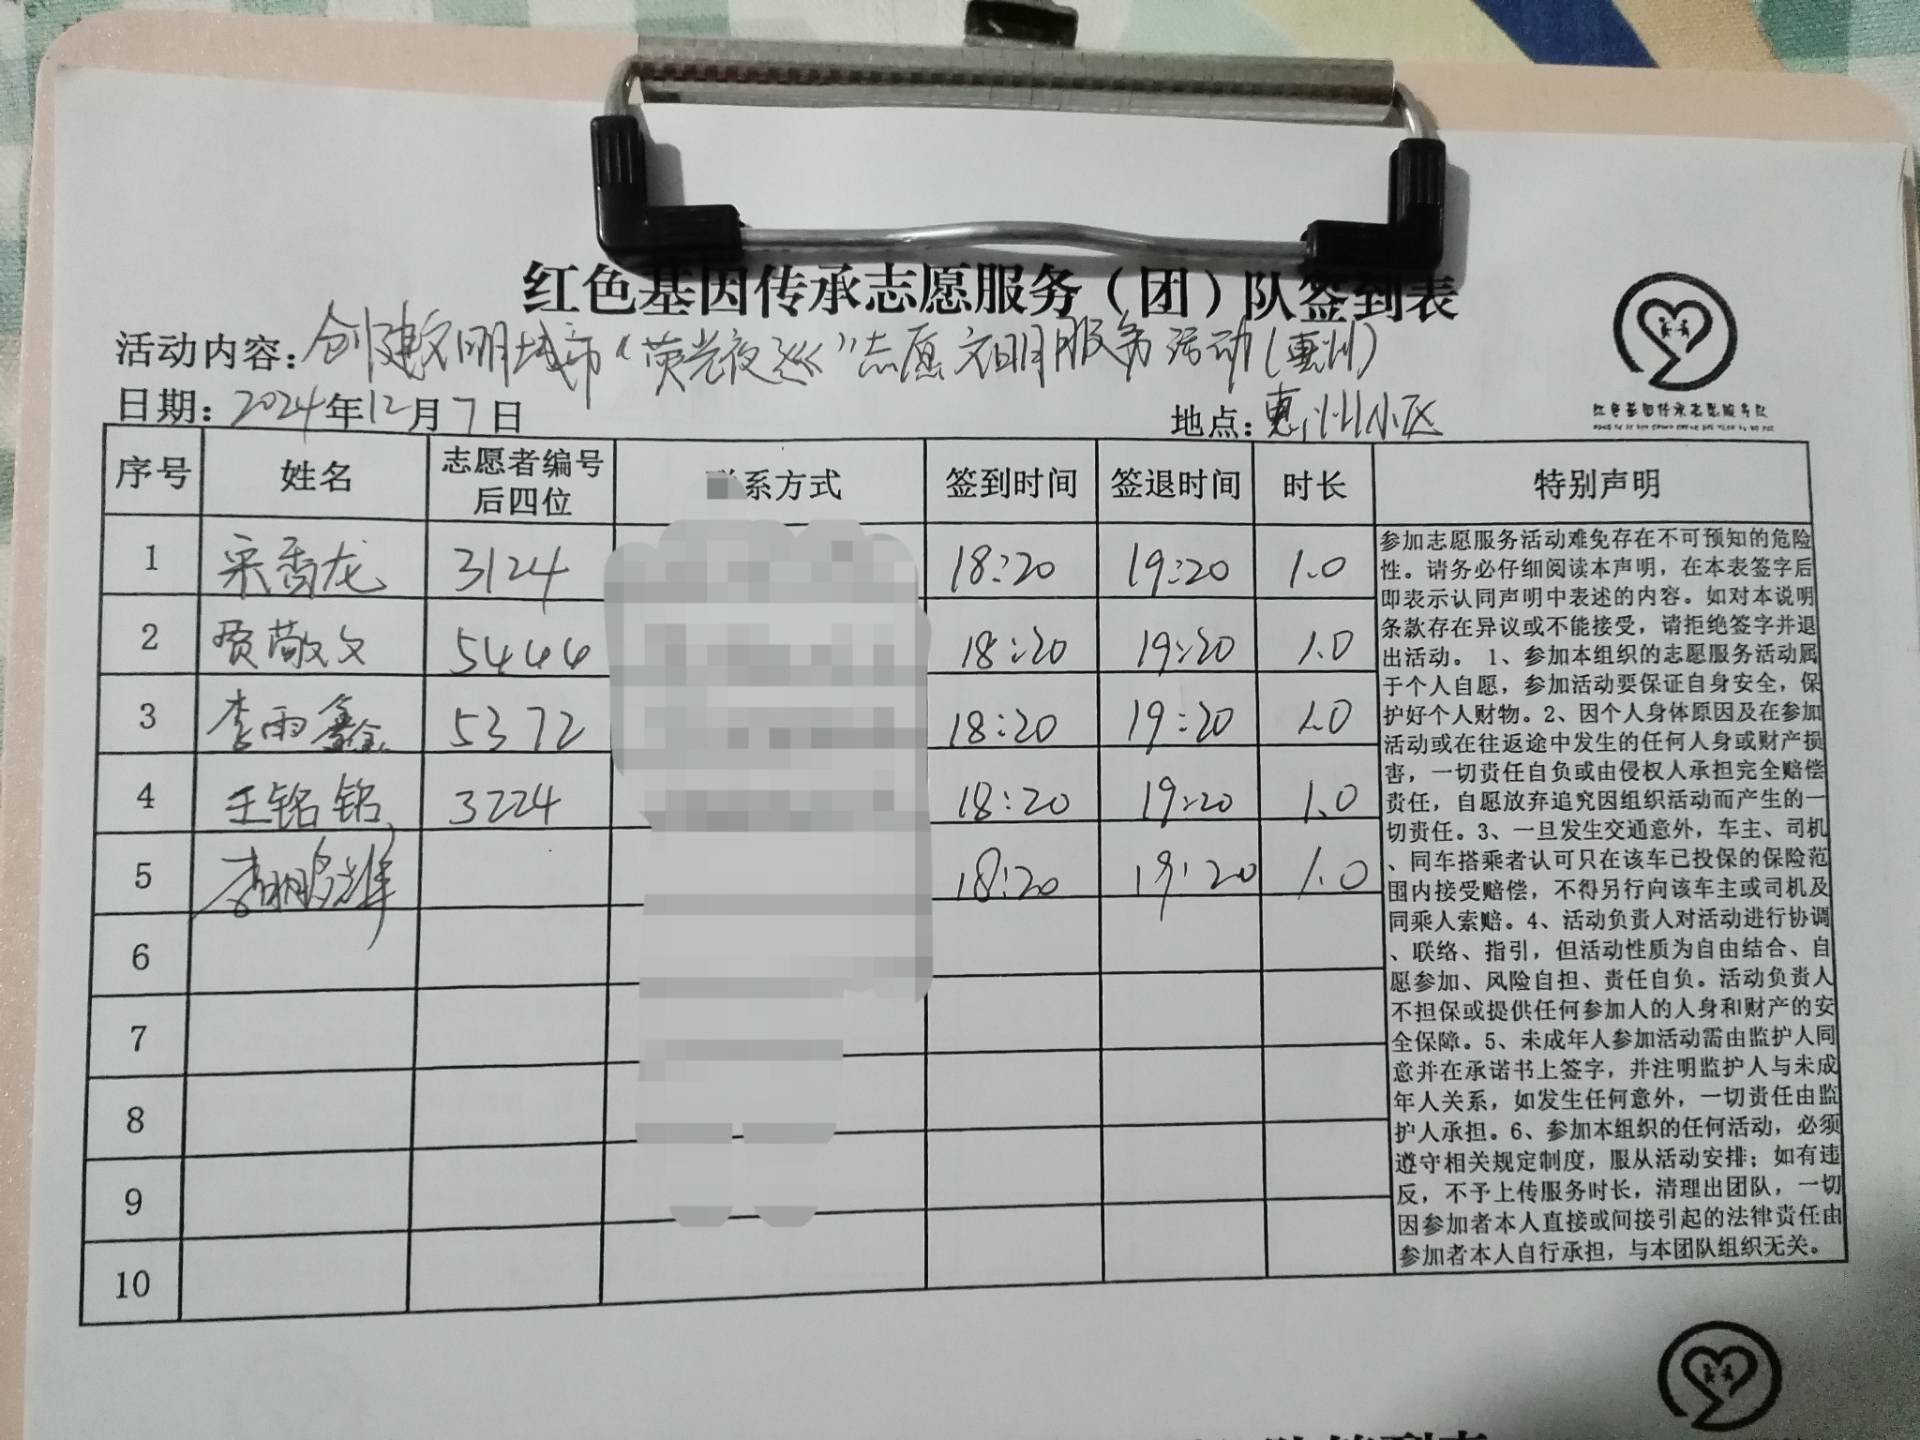 红色基因传承志愿服务（团）队签到表
活动内容：创建文明城市“荧光夜巡”志愿文明服务活动（惠州）
日期：2024年12月7日 地点：惠州小区
红色基因传承志愿服务队
序号 姓名 志愿者编号后四位 系方式 签到时间 签退时间 时长 特别声明
1 宋香龙 3124 18:20 19:20 1.0
2 贾敬文 5444 18:20 19:20 1.0
3 李雨鑫 5372 18:20 19:20 1.0
4 王铭铭 3224 18:20 19:20 1.0
5 李鹏辉 18:20 19:20 1.0
6
7
8
9
10
参加志愿服务活动难免存在不可预知的危险
性。请务必仔细阅读本声明，在本表签字后
即表示认同声明中表述的内容。如对本说明
条款存在异议或不能接受，请拒绝签字并退
出活动。 1、参加本组织的志愿服务活动属
于个人自愿，参加活动要保证自身安全，保
护好个人财物。2、因个人身体原因及在参加
活动或在往返途中发生的任何人身或财产损
害，一切责任自负或由侵权人承担完全赔偿
责任，自愿放弃追究因组织活动而产生的一
切责任。3、一旦发生交通意外，车主、司机
、同车搭乘者认可只在该车已投保的保险范
围内接受赔偿，不得另行向该车主或司机及
同乘人索赔。4、活动负责人对活动进行协调
、联络、指引，但活动性质为自由结合、自
愿参加、风险自担、责任自负。活动负责人
不担保或提供任何参加人的人身和财产的安
全保障。5、未成年人参加活动需由监护人同
意并在承诺书上签字，并注明监护人与未成
年人关系，如发生任何意外，一切责任由监
护人承担。6、参加本组织的任何活动，必须
遵守相关规定制度，服从活动安排；如有违
反，不予上传服务时长，清理出团队，一切
因参加者本人直接或间接引起的法律责任由
参加者本人自行承担，与本团队组织无关。